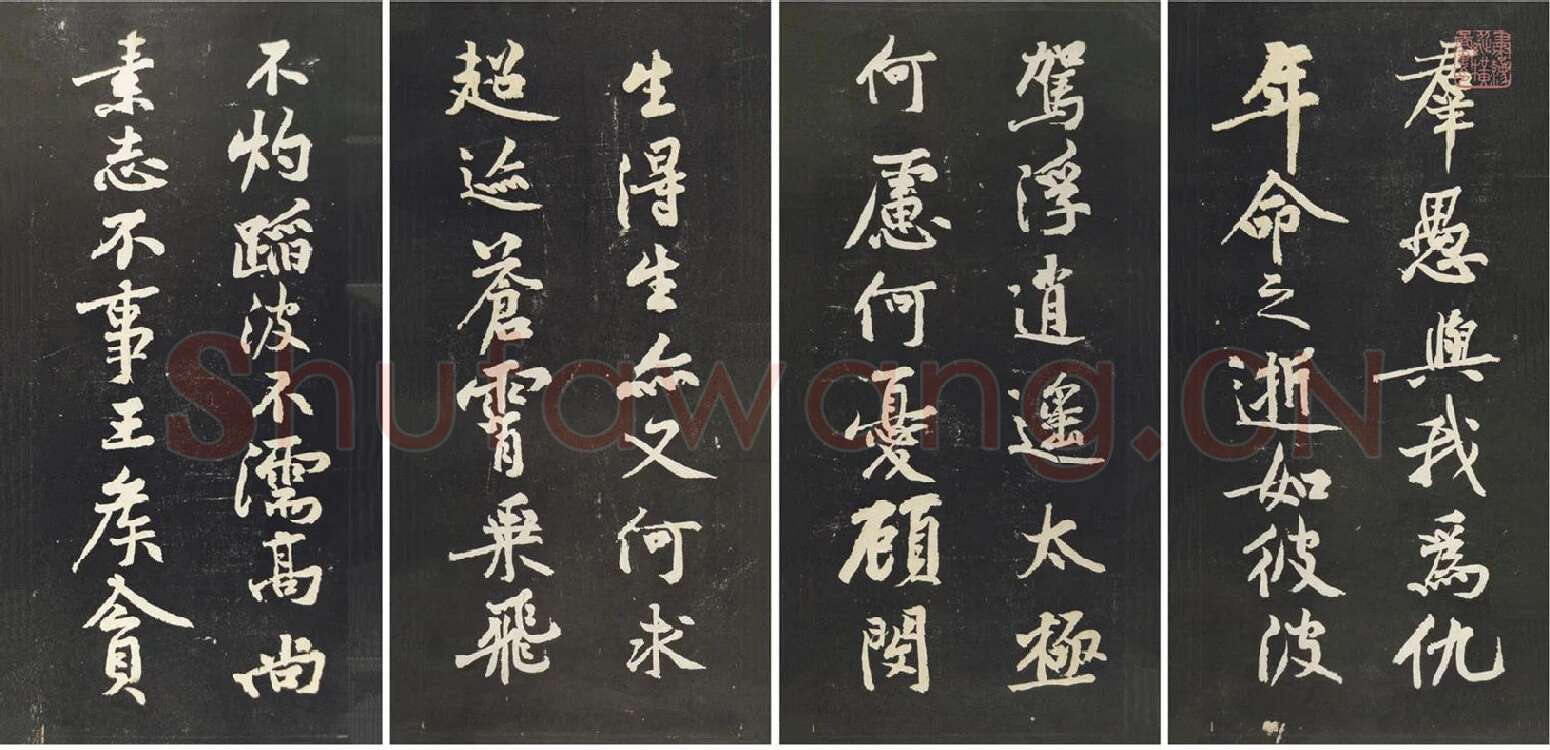 羣愚與我爲仇
年命之逝如彼波
駕浮逍遙太極
何慮何憂顧閔
生得生亦又何求
超迹蒼霄乘飛
不灼蹈波不濡高尚
素志不事王矦貪
Shufawang.CN